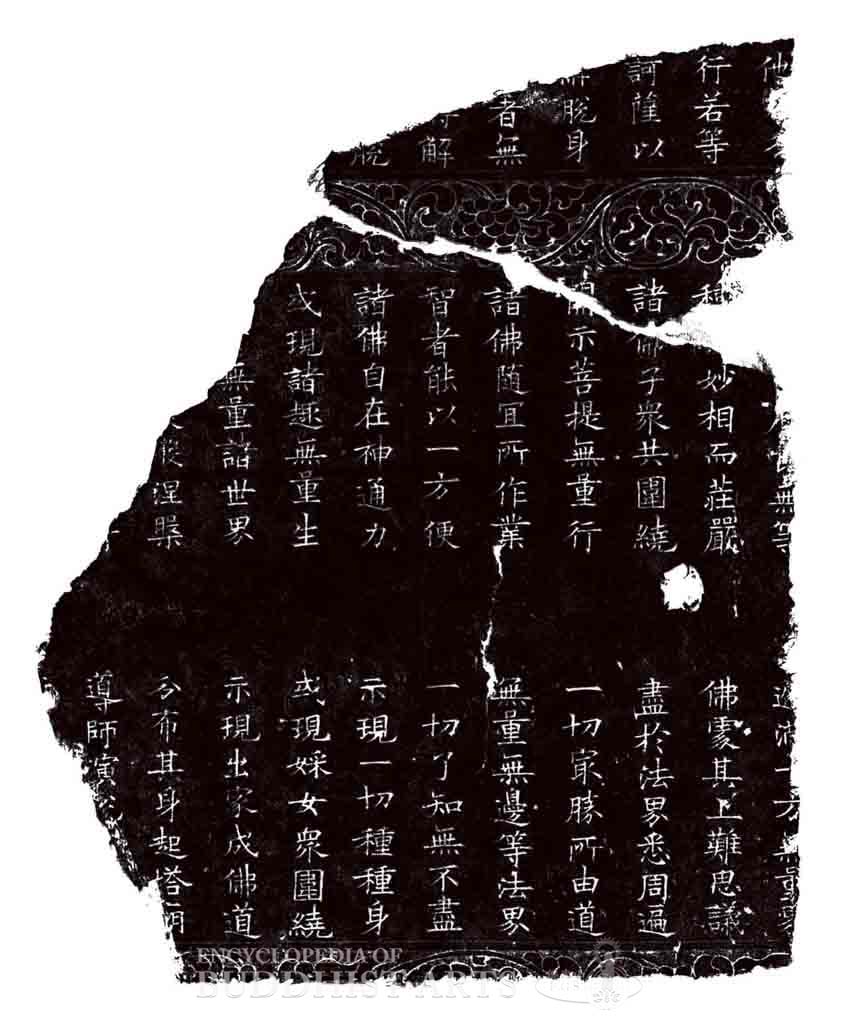 他
行若等
訶薩以
脫身
者無
解
脫
無等
妙相而莊嚴
諸佛子衆共圍繞
開示菩提無量行
諸佛随宜所作業
智者能以一方便
諸佛自在神通力
或現諸趣無量生
無量諸世界
般涅槃
遍滿十方無量界
佛處其上難思議
盡於法界悉周遍
一切冣勝所由道
無量無邊等法界
一切了知無不盡
示現一切種種身
或現婇女衆圍繞
示現出家成佛道
分布其身起塔廟
導師演
ENCYCLOPEDIA OF
BUDDHIST ARTS